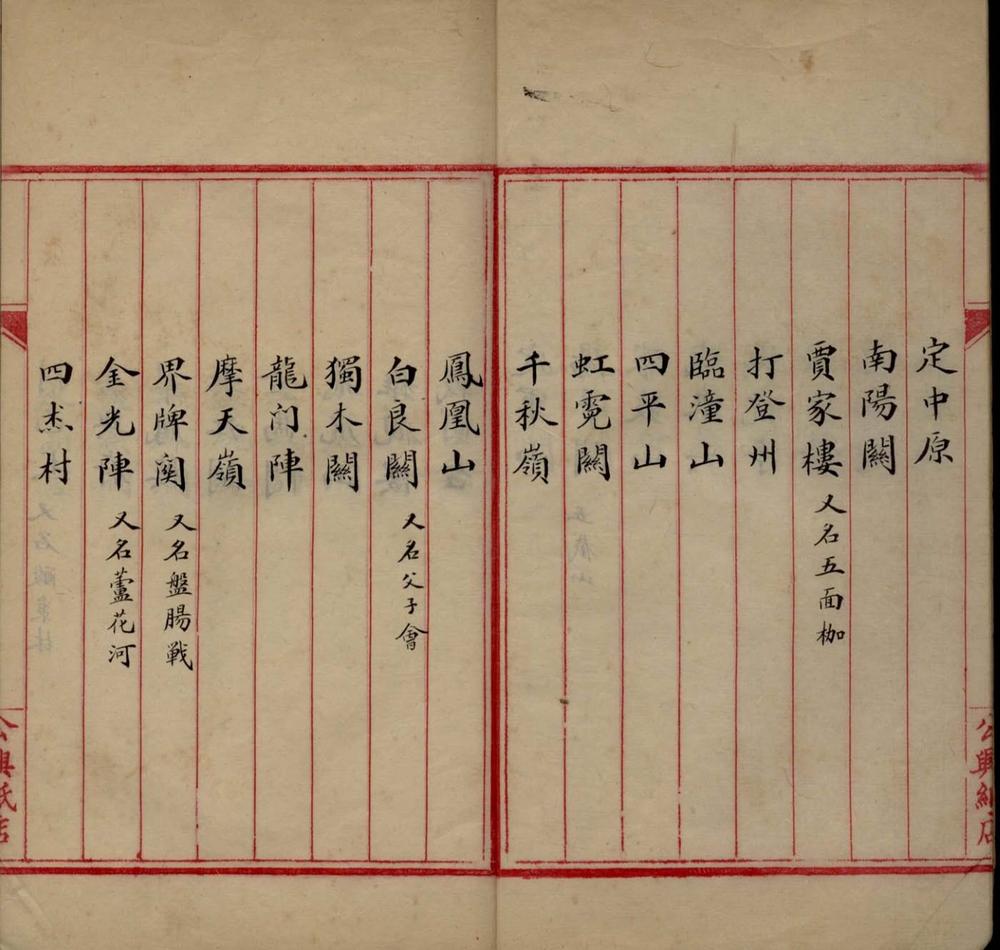 定中原
南陽關
賈家樓 又名五面枷
打登州
臨潼山
四平山
虹霓關
千秋嶺
鳳凰山
白良關 又名父子會
獨木關
龍门陣
摩天嶺
界牌関 又名盤腸戰
金光陣 又名蘆花河
四杰村
公興紙店
公興紙店